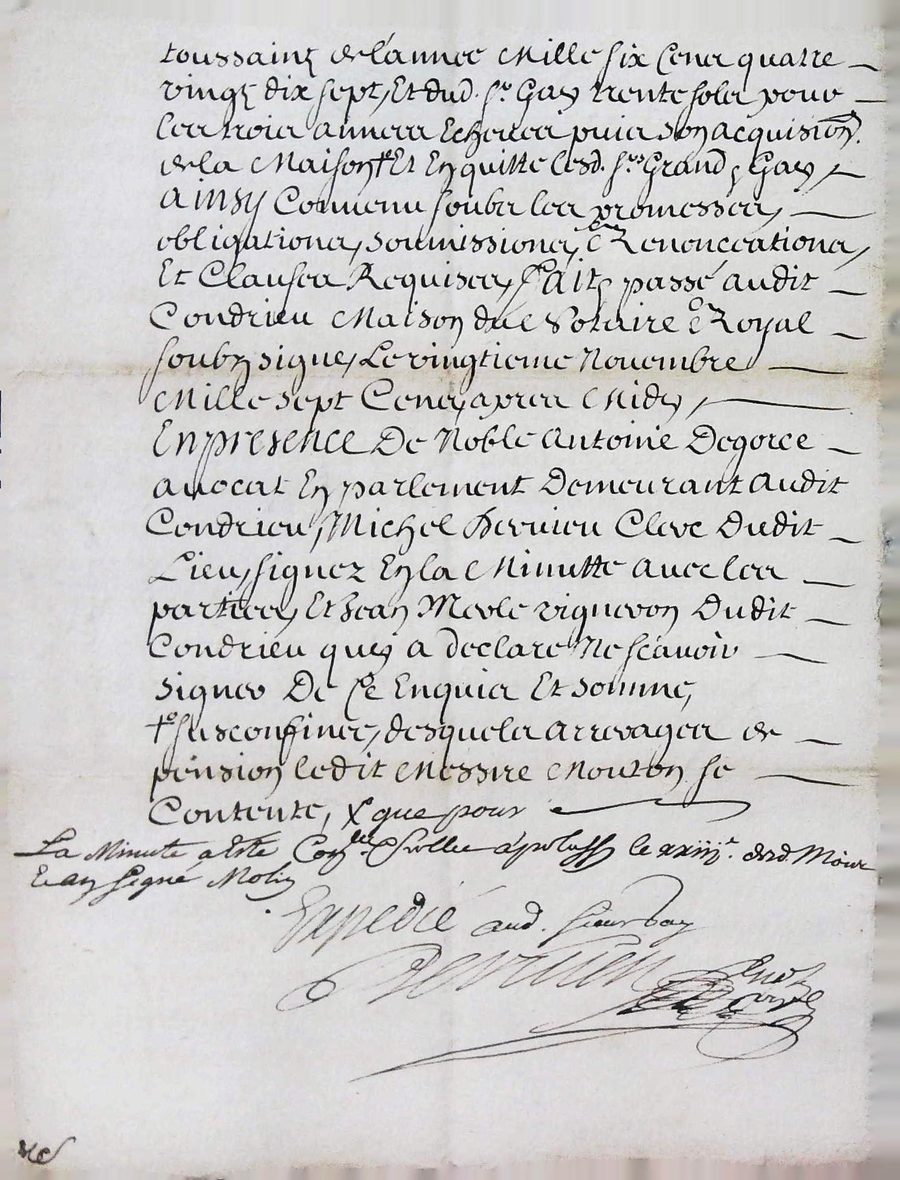 toussaint de l'année Mille six Cens quatre
vingt dix sept, Et dud. sr. Gay trente sols pour
les trois années Echeues puis son acquision.
de la Maison † Et En quitte lesd. srs Grand & Gay
ainsy Convenu soubs les promesses,
obligations, soumissions, & Renonceations,
Et Clauses Requises, fait & passé audit
Condrieu Maison du Notaire Royal
soubsigné, Le vingtieme Novembre
Mille sept Cens, apres Midy,
En presence De Noble Antoine Degorce
avocat En parlement Demeurant audit
Condrieu, Michel Dervieu Clerc Dudit
Lieu, signez En la Minutte avec les
parties, Et Jean Merle vigneron Dudit
Condrieu quy a declaré Ne scavoir
signer De ce Enquis Et sommé,
† susconfinée, desquels arrerages de
pension ledit Messire Mouton se
Contente, X que pour
La Minute a Esté Conlee & Scellee le xxiiiie. desd. Mois
Et an signé
Expedié aud. sieur Gay
Dervieu